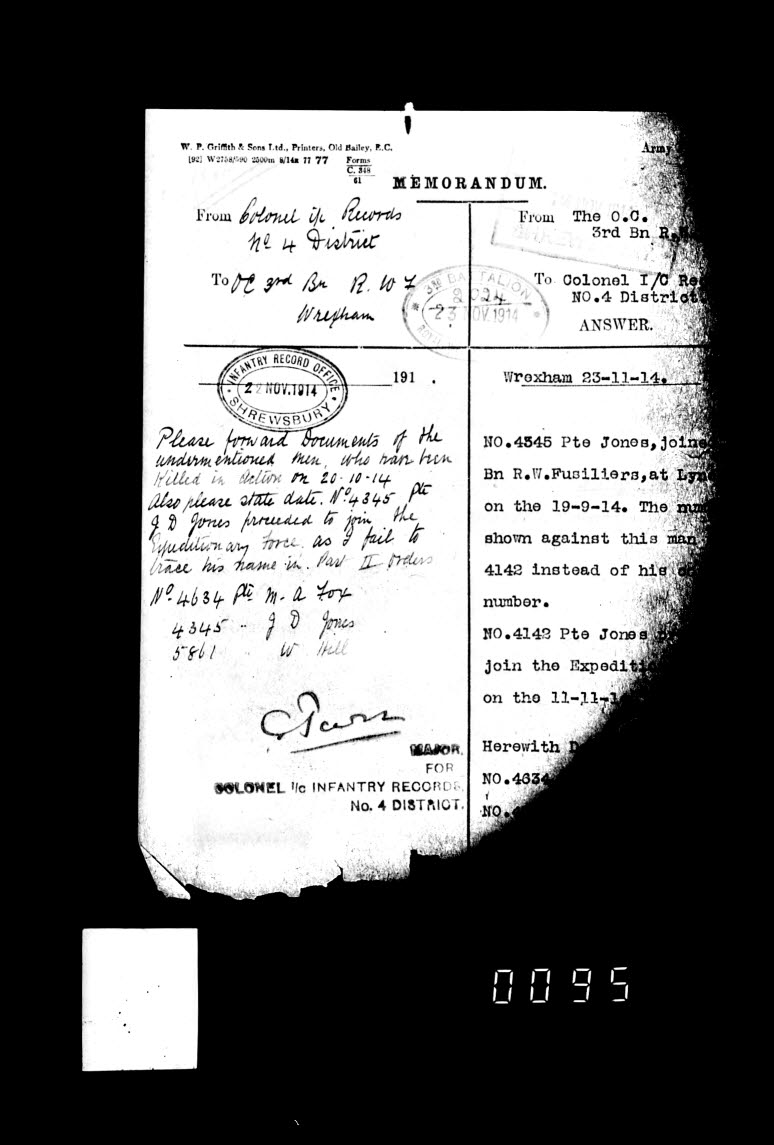 W. P. Griffith & Sons Ltd., Printers, Old Bailey, E.C.
[92] W2758/590 2500m 8/14R 77 77
Forms
C. 348
61
Army
MEMORANDUM.
From Colonel i/c Records
No 4 District
To OC 3rd Bn R. W F
Wrexham
INFANTRY RECORD OFFICE
22 NOV.1914
SHREWSBURY
191 .
Please forward Documents of the
undermentioned Men, who have been
Killed in Action on 20-10-14
Also please state date. No 4345 Pte
J D Jones proceeded to join the
Expeditionary Force, as I fail to
trace his name in. Part II Orders
No 4634 Pte M. A Fox
4345 " J D Jones
5861 " W Hill
MAJOR.
FOR
COLONEL I/c INFANTRY RECORDS,
No. 4 DISTRICT.
From The O.C.
3rd Bn R.
3RD BATTALION
2024
23 NOV 1914
To Colonel I/C Re
NO.4 District
ANSWER.
Wrexham 23-11-14.
NO.4345 Pte Jones, joine
Bn R.W.Fusiliers, at Lyn
on the 19-9-14. The num
shown against this man
4142 instead of his
number.
NO.4142 Pte Jones
join the Expediti
on the 11-11-1
Herewith D
NO.4634
NO.
0095